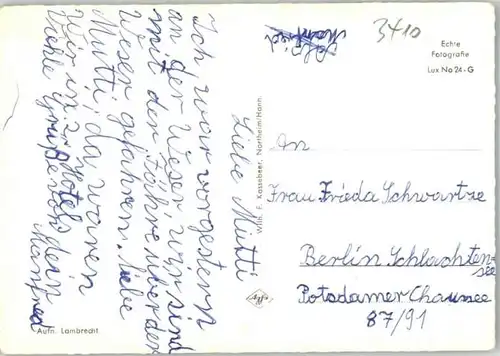 Liebe Mutti
Ich war vorgestern
an der Weser, wir sind
mit der Fähre über der
Weser gefahren. Liebe
Mutti, da waren
wir in 2 Hotels
Viele Grüße von dein
Manfred
Aufn. Lambrecht
Wilh. F. Kassebeer, Northeim/Hann.
3410
Echte
Fotografie
Lux No 24-G
An
Frau Frieda Schwartze
Berlin Schlachten-
see
Potsdamer Chaussee
87/91